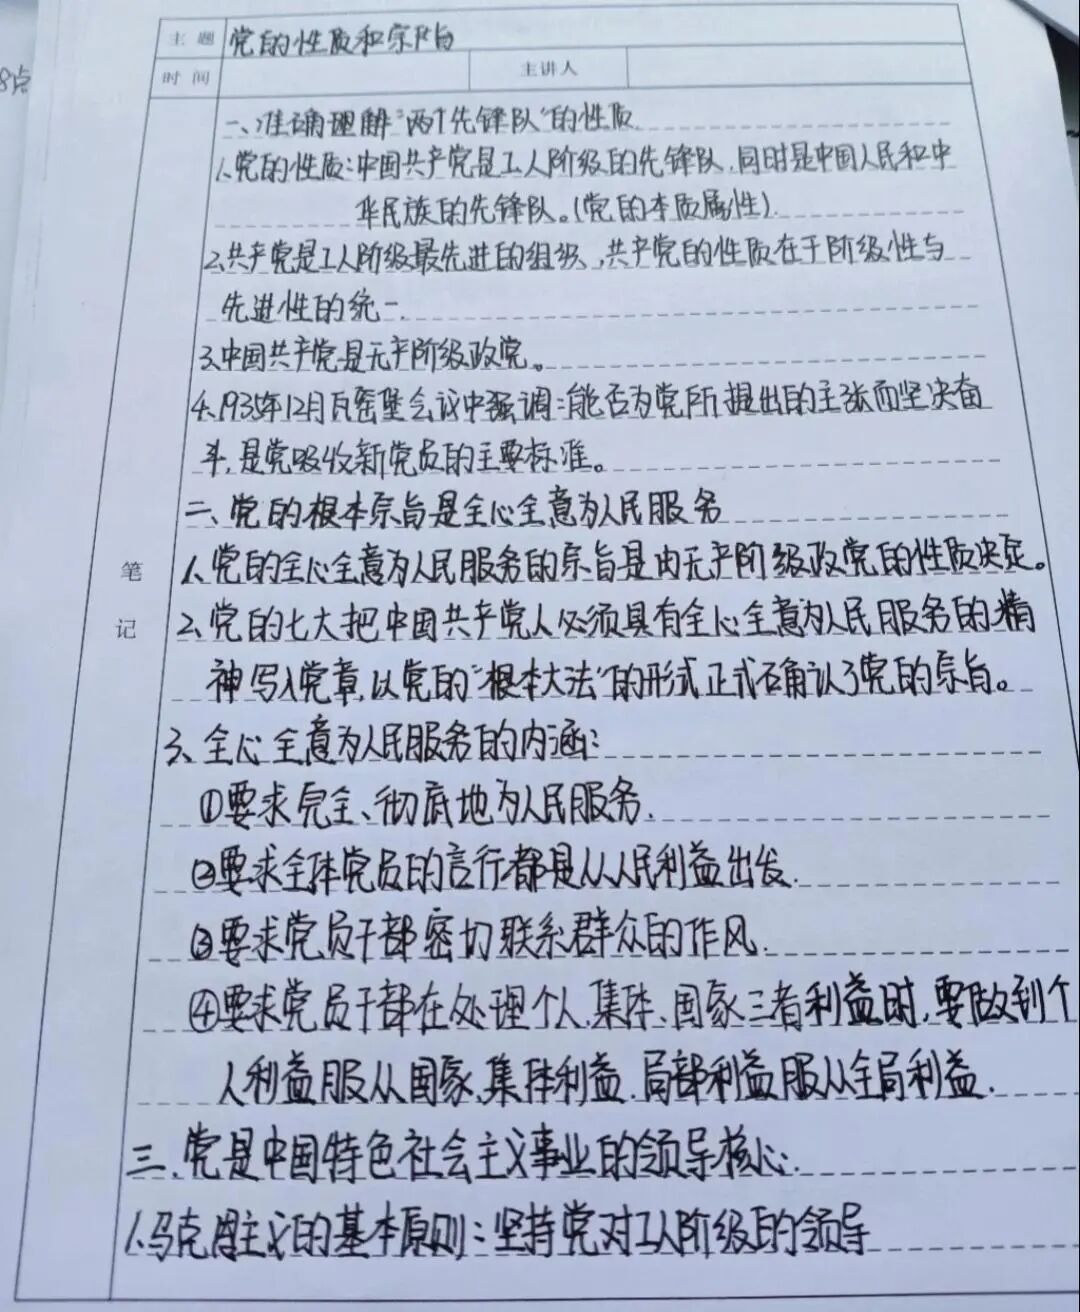 8点
主题 党的性质和宗旨
时间 主讲人
一、准确理解“两个先锋队”的性质
1.党的性质:中国共产党是工人阶级的先锋队,同时是中国人民和中
华民族的先锋队。(党的本质属性).
2.共产党是工人阶级最先进的组织,共产党的性质在于阶级性与
先进性的统一.
3.中国共产党是无产阶级政党。
4.1935年12月瓦窑堡会议中强调:能否为党所提出的主张而坚决奋
斗,是党吸收新党员的主要标准。
二、党的根本宗旨是全心全意为人民服务
1、党的全心全意为人民服务的宗旨是由无产阶级政党的性质决定。
笔记
2、党的七大把中国共产党人必须具有全心全意为人民服务的精
神写入党章,以党的“根本大法”的形式正式确认了党的宗旨。
3、全心全意为人民服务的内涵:
①要求完全、彻底地为人民服务.
②要求全体党员的言行都是从人民利益出发.
③要求党员干部密切联系群众的作风.
④要求党员干部在处理个人、集体、国家三者利益时,要做到个
人利益服从国家、集体利益,局部利益服从全局利益.
三、党是中国特色社会主义事业的领导核心.
1.马克思主义的基本原则:坚持党对工人阶级的领导